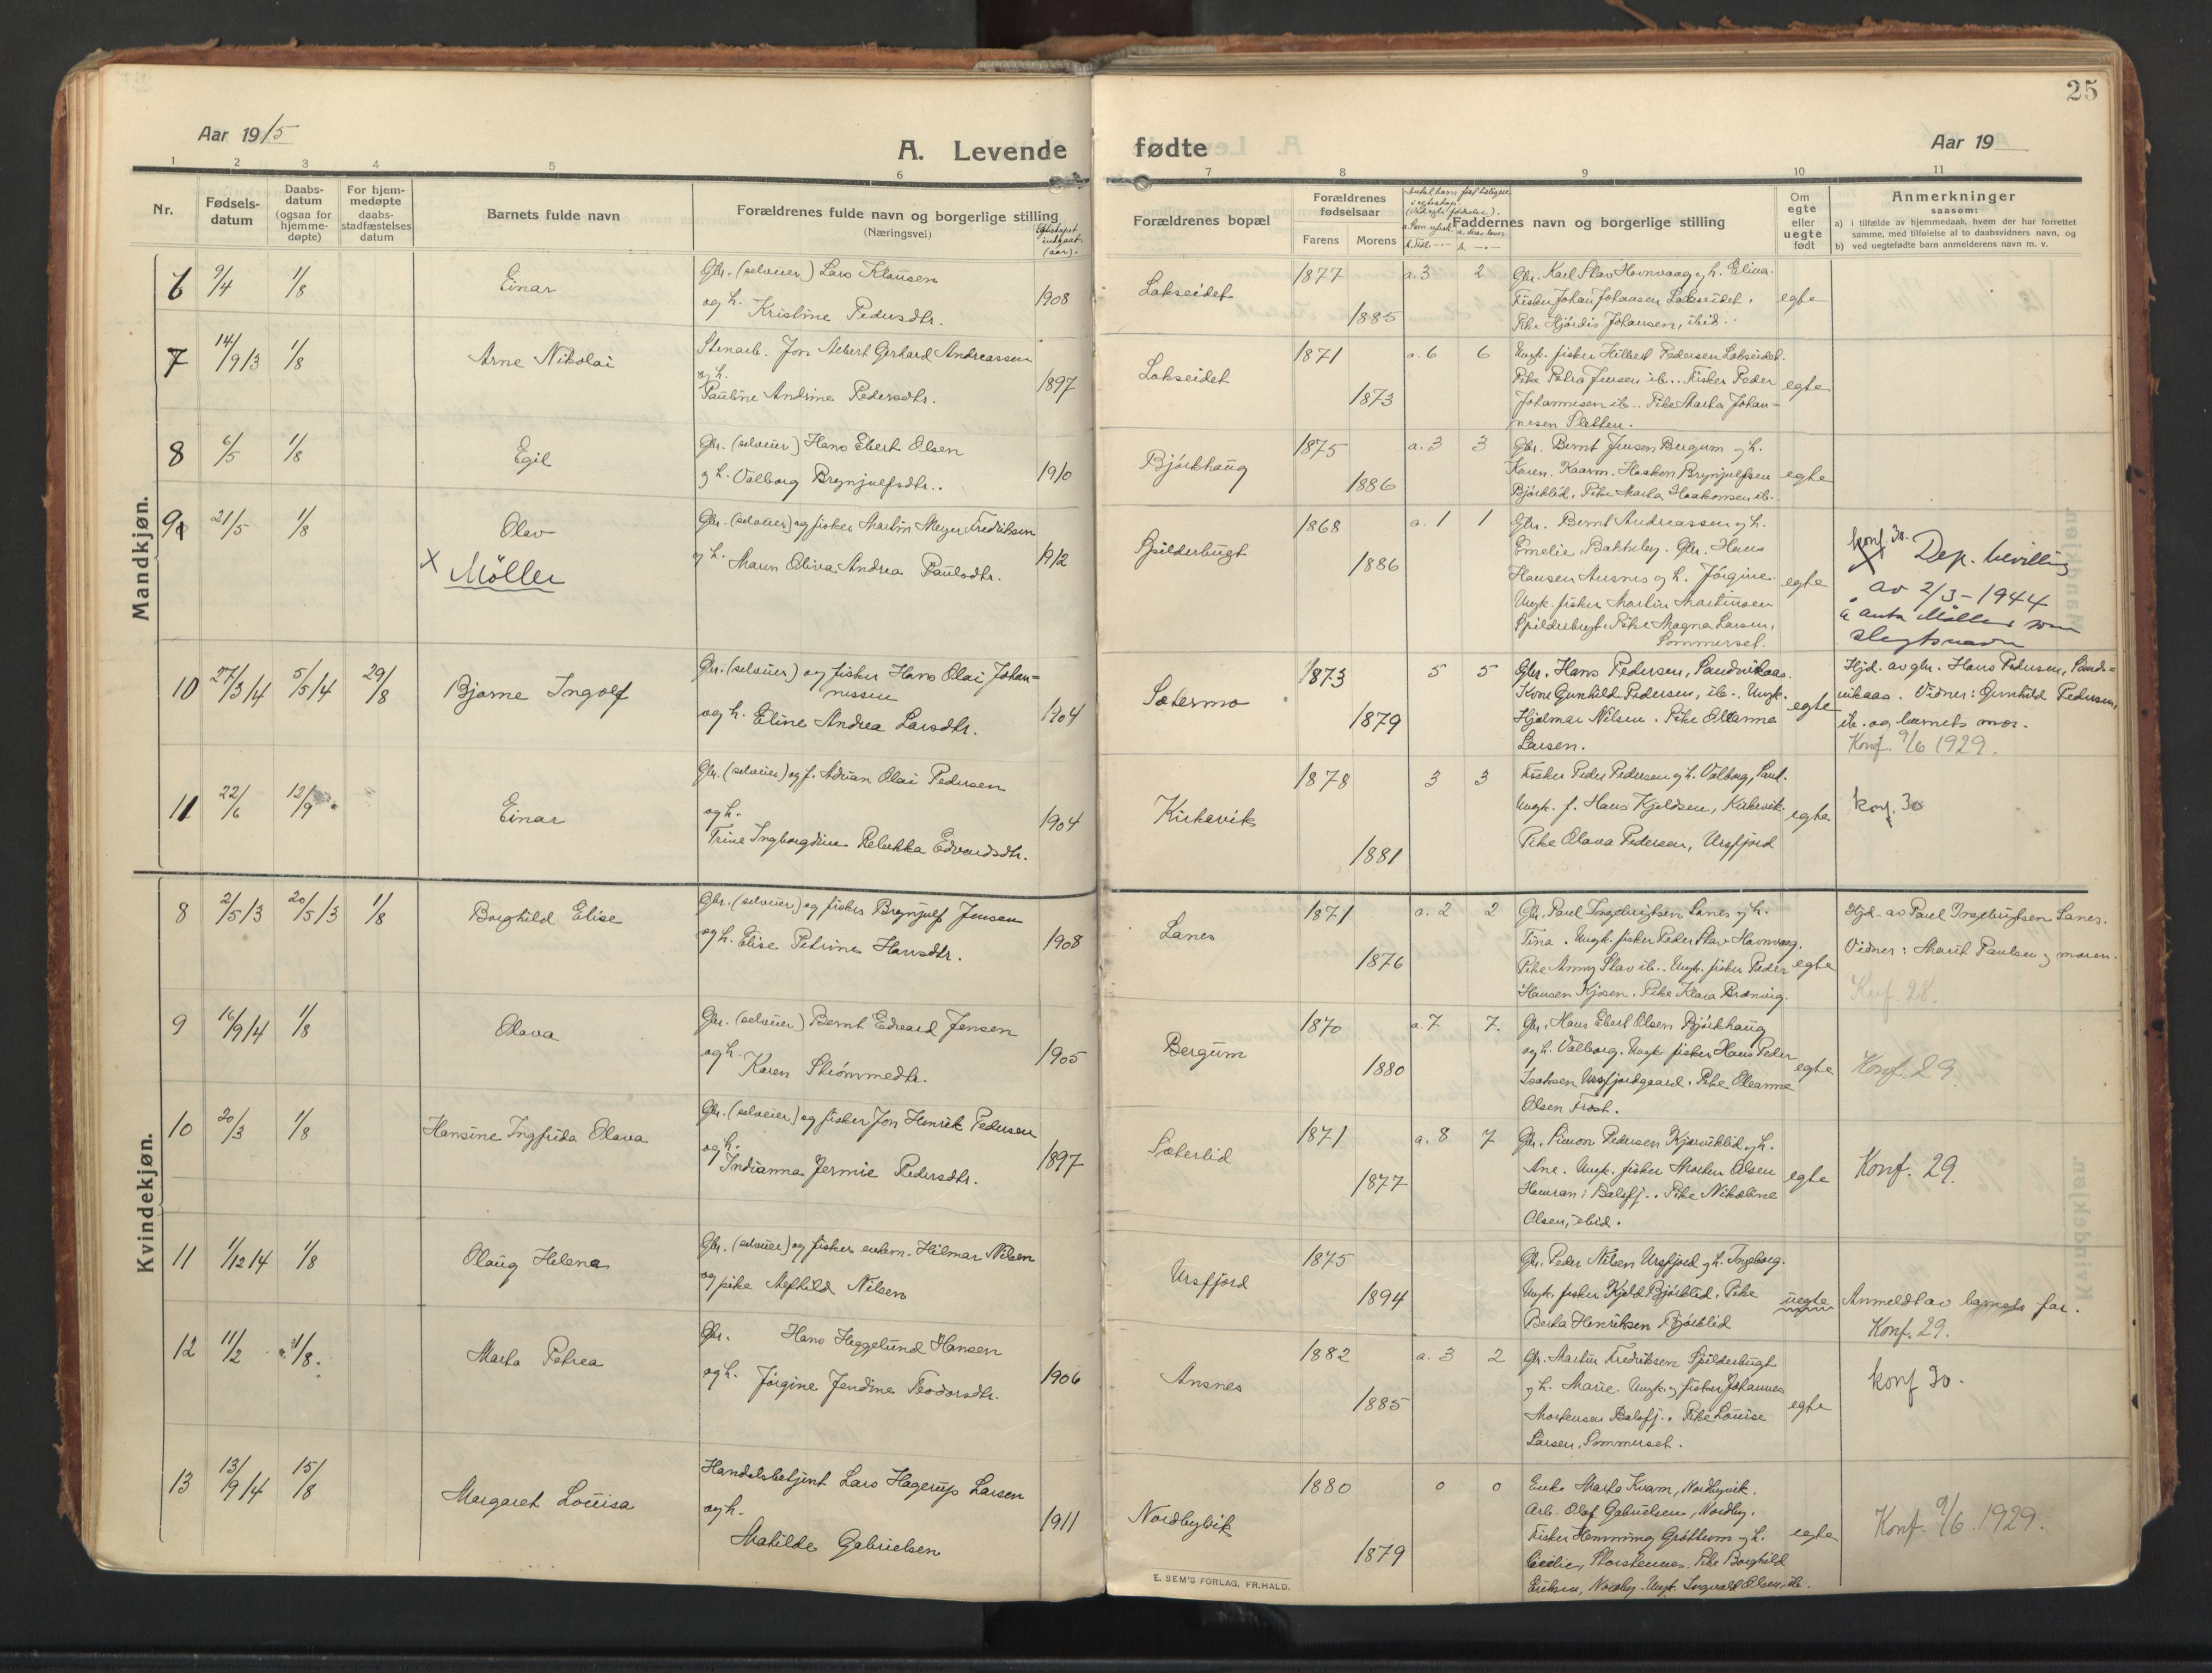 25
Aar 1915
A. Levende
fødte
Aar 19
1 2 3 4 5 6 7 8 9 10 11
Nr.
Fødsels-
datum
Daabs-
datum
(ogsaa for
hjemme-
døpte)
For hjem-
medøpte
daabs-
stadfæstelses
datum
Barnets fulde navn
Forældrenes fulde navn og borgerlige stilling
(Næringsvei)
Egteskapet
indgaat
(aar).
Forældrenes bopæl
Forældrenes
fødselsaar
Farens Morens
Faddernes navn og borgerlige stilling
Om
egte
eller
uegte
født
Anmerkninger
saasom:
a) i tilfælde av hjemmedaab, hvem der har forrettet
samme, med tilføielse af to daabsvidners navn, og
b) ved uegtefødte barn anmelderens navn m. v.
Mandkjøn.
6 9/4 1/8 Einar
Gbr. (selveier) Lars Klausen
og h. Kristine Pedersdtr. 1908
Lakseidet 1877 1885 a. 3 2
Gbr. Karl Slav Havnvaag og h. Elina.
Fisker Johan Johansen Lakseidet.
Pike Hjórdis Johansen, ibid.
egte
7 14/9 13 1/8 Arne Nikolai
Stenarb. Jon Albert Gerhard Andreassen
og h.
Pauline Andrine Pedersdtr. 1897
Lakseidet 1871 1873 a. 6 6
Ungk. fisker Hilbert Pedersen Lakseidet.
Pike Petra Jensen ib.. Fisker Peder
Johannesen ib.. Pike Marta Johan=
nesen Sletten.
egte
8 6/5 1/8 Egil
Gbr. (selveier) Hans Ebert Olsen
og h. Valborg Brynjulfsdtr.. 1910
Bjórkhaug 1875 1886 a. 3 3
Gbr. Bernt Jensen Bergum og h.
Karen. Kaarm. Haakon Brynjulfsen
Bjórklid. Pike Marta Haakonsen ib.
egte
9 21/5 1/8 Olav
X Möller
Gbr. (selveier) og fisker Martin Meyer Fredriksen
og h. Maren Oliva Andrea Paulsdtr. 1912
Spilderbugt 1868 1886 a. 1 1
Gbr. Bernt Andreassen og h.
Emelie, Bakkeby. Gbr. Hans
Hansen Ansnes og h. Jórgine.
Ungk. fisker Martin Martinsen
Spilderbugt. Pike Magna Larsen,
Sommerset.
egte
konf. 30.
X Dep. bevilling
av 2/3-1944
å anta Möller som
slegtsnavn
10 27/3 14 5/5 14 29/8 Bjarne Ingolf
Gbr. (selveier) og fisker Hans Olai Johan=
nessen
og h. Eline Andrea Larsdtr. 1904
Sætermo 1873 1879 5 5
Gbr. Hans Pedersen, Sandvikaas.
Kone Gunhild Pedersen, ib.. Ungk.
Hjalmar Nilsen. Pike Oleanna
Larsen.
egte
Hjd. av gbr. Hans Pedersen, Sand=
vikaas. Vidner: Gunhild Pedersen,
ib. og barnets mor.
Konf. 9/6 1929.
11 22/6 12/9 Einar
Gbr. (selveier) og f. Adrian Olai Pedersen
og h.
Trine Ingborgdine Rebekka Edvardsdtr. 1904
Kirkevik 1878 1881 3 3
Fisker Peder Pedersen og h. Valborg,
Ungk. f. Hans Kjeldsen, Kirkevik.
Pike Olava Pedersen, Ursfjord
egte
konf. 30
Kvindekjøn.
8 2/5 13 20/5 13 1/8 Borghild Elise
Gbr. (selveier) og fisker Brynjulf Jensen
og h. Elise Petrine Hansdtr. 1908
Lanes 1871 1876 a. 2 2
Gbr. Paul Ingebrigtsen Lanes og h.
Tina. Ungk. fisker Peder Slav Havnvaag.
Pike Anny Slav ib.. Ungk. fisker Peder
Hansen Kjosen. Pike Klara
egte
Hjd. av Paul Ingebrigtsen Lanes.
Vidner: Marit Paulsen og moren.
Konf. 28.
9 16/9 14 1/8 Olava
Gbr. (selveier) Bernt Edvard Jensen
og h.
Karen Strómmedtr. 1905
Bergum 1870 1880 a. 7 7.
Gbr. Hans Ebert Olsen Bjórkhaug
og h. Valborg. Ungk. fisker Hans Peder
Isaksen Ursfjordgaard. Pike Oleanne
Olsen
egte
Konf. 29.
10 20/3 1/8 Hansine Ingfrida Olava
Gbr. (selveier) og fisker Jon Henrik Pedersen
og h.
Indianna Jermie Pedersdtr. 1897
Sæterlid 1871 1877 a. 8 7
Gbr. Simon Pedersen Kjærviklid og h.
Ane. Ungk. fisker Morten Olsen
Balsfj.. Pike Nikoline
Olsen, ibid.
egte
Konf. 29.
11 1/12 14 1/8 Olaug Helena
Gbr. (selveier) og fisker enkem. Hilmar Nilsen
og pike Mathild Nilsen
Ursfjord 1875 1894
Gbr. Peder Nilsen Ursfjord og h. Ingeborg.
Ungk. fisker Kjeld Bjórklid. Pike
Berta Henriksen Bjórklid
uegte
Anmeldt av barnets far.
Konf. 29.
12 11/2 1/8. Marta Petrea
Gbr. Hans Heggelund Hansen
og h. Jórgine Jendine Teodorsdtr. 1906
Ansnes 1882 1885 a. 3 2
Gbr. Martin Fredriksen Spilderbugt
og h. Marie. Ungk. og fisker Johannes
Mortensen Balsfj.. Pike Louise
Larsen, Sommerset.
egte
konf 30.
13 13/9 14 15/8 Margaret Louisa
Handelsbetjent Lars Hagerup Larsen
og h.
Matilde Gabrielsen 1911
Nordbyvik 1880 1879 0 0
Enke Marta Kvam, Nordbyvik.
Arb. Olaf Gabrielsen, Nordby.
Fisker Hemming Gróthem og h.
Cecilie, Storstennes. Pike Borghild
Eriksen, Nordby. Ungk. Ingvald Olsen, ib.
egte
Konf. 9/6 1929.
E. SEM'S FORLAG, FR.HALD.